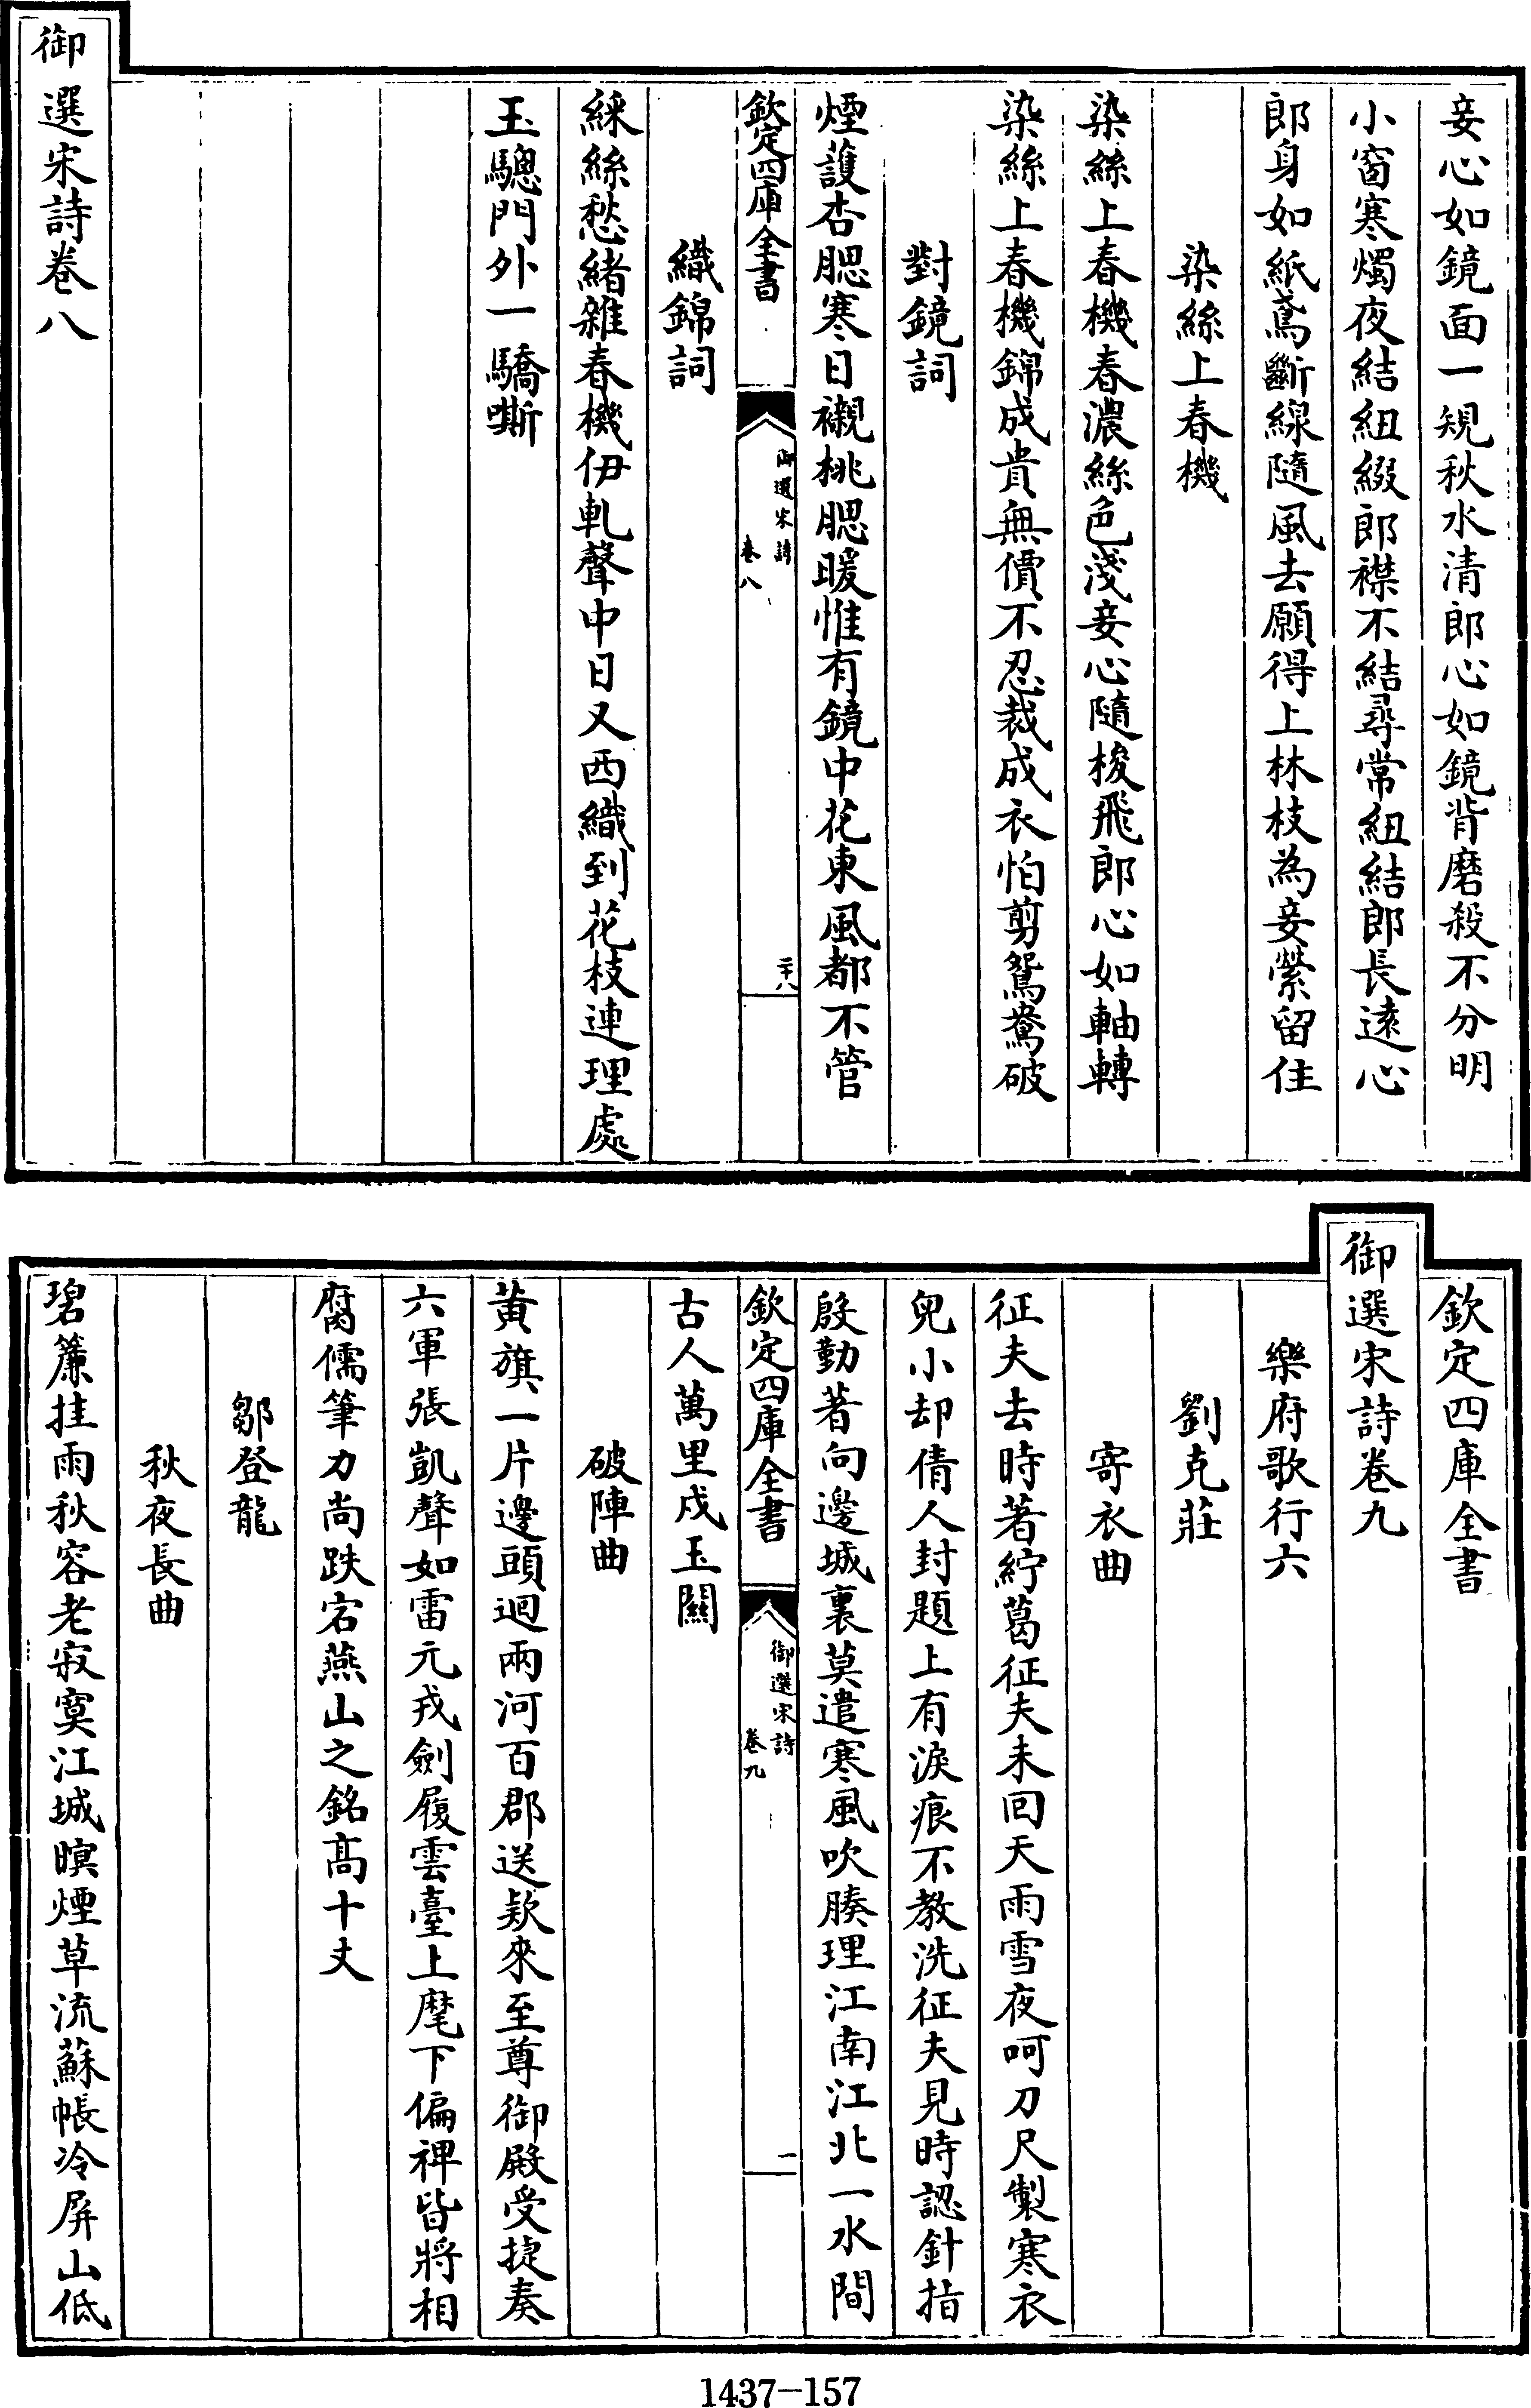 妾心如鏡面一規秋水清郎心如鏡背磨殺不分明
小窗寒燭夜結紐綴郎襟不結尋常紐結郎長遠心
郎身如紙鳶斷線隨風去願得上林枝為妾縈留住
染絲上春機
染絲上春機春濃絲色淺妾心隨梭飛郎心如軸轉
染絲上春機錦成貴無價不忍裁成衣怕剪鴛鴦破
對鏡詞
煙護杏腮寒日襯桃腮暖惟有鏡中花東風都不管
欽定四庫全書
御選宋詩
卷八
二十八
織錦詞
綵絲愁緒雜春機伊軋聲中日又西織到花枝連理處
玉驄門外一驕嘶
御選宋詩卷八
欽定四庫全書
御選宋詩卷九
樂府歌行六
劉克莊
寄衣曲
征夫去時著紵葛征夫未回天雨雪夜呵刀尺製寒衣
兒小却倩人封題上有淚痕不教洗征夫見時認針指
殷勤著向邊城裏莫遣寒風吹腠理江南江北一水間
欽定四庫全書
御選宋詩
卷九
一
古人萬里戍玉關
破陣曲
黃旗一片邊頭迴兩河百郡送欵來至尊御殿受捷奏
六軍張凱聲如雷元戎劍履雲臺上麾下偏裨皆將相
腐儒筆力尚跌宕燕山之銘高十丈
鄒登龍
秋夜長曲
碧簾挂雨秋容老寂寞江城暝煙草流蘇帳冷屏山低
1437-157